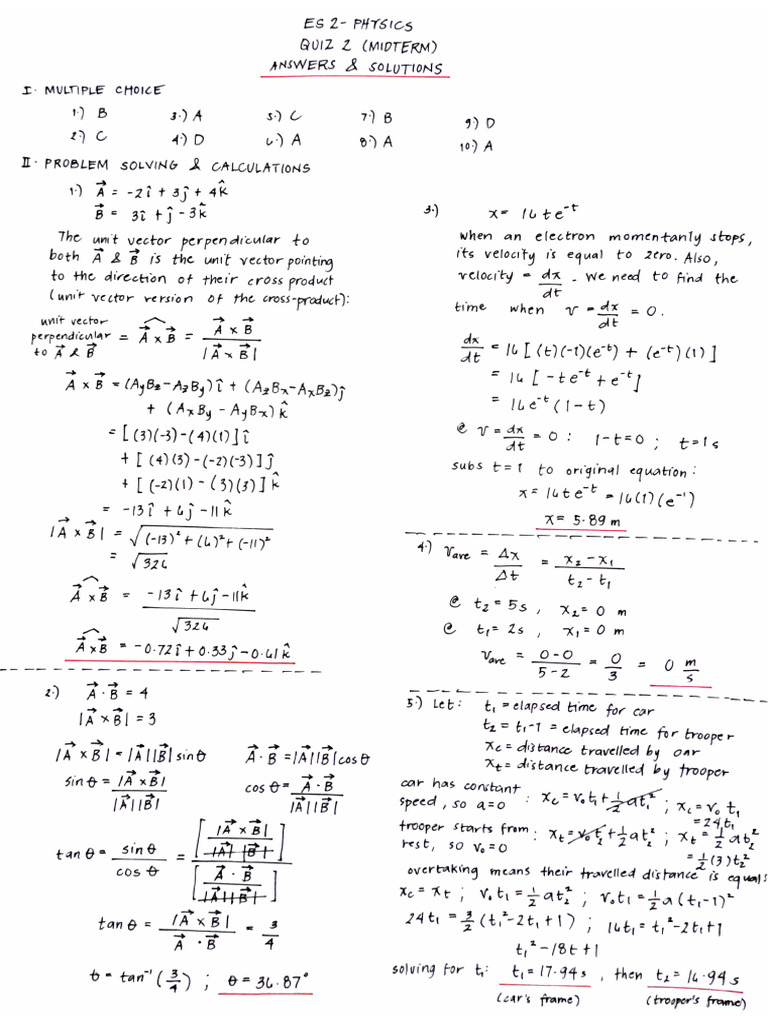 ES 2 - PHYSICS
QUIZ 2 (MIDTERM)
ANSWERS & SOLUTIONS
I. MULTIPLE CHOICE
1.) B 3.) A 5.) C 7.) B 9.) D
2.) C 4.) D 6.) A 8.) A 10.) A
II. PROBLEM SOLVING & CALCULATIONS
1.) A⃗ = -2î + 3ĵ + 4k̂
B⃗ = 3î + ĵ - 3k̂
The unit vector perpendicular to
both A⃗ & B⃗ is the unit vector pointing
to the direction of their cross product
(unit vector version of the cross-product):
unit vector
perpendicular = A⃗ x B⃗ = A⃗ x B⃗ / |A⃗ x B⃗|
to A⃗ & B⃗
A⃗ x B⃗ = (AyBz - AzBy)î + (AzBx - AxBz)ĵ
+ (AxBy - AyBx)k̂
= [(3)(-3) - (4)(1)]î
+ [(4)(3) - (-2)(-3)]ĵ
+ [(-2)(1) - (3)(3)]k̂
= -13î + 6ĵ - 11k̂
|A⃗ x B⃗| = √((-13)² + (6)² + (-11)²)
= √326
A⃗ x B⃗ = -13î + 6ĵ - 11k̂ / √326
A⃗ x B⃗ = -0.72î + 0.33ĵ - 0.61k̂
2.) A⃗ · B⃗ = 4
|A⃗ x B⃗| = 3
|A⃗ x B⃗| = |A⃗||B⃗| sinθ A⃗ · B⃗ = |A⃗||B⃗| cosθ
sinθ = |A⃗ x B⃗| / |A⃗||B⃗| cosθ = A⃗ · B⃗ / |A⃗||B⃗|
tanθ = sinθ / cosθ = [|A⃗ x B⃗| / |A⃗||B⃗|] / [A⃗ · B⃗ / |A⃗||B⃗|]
tanθ = |A⃗ x B⃗| / A⃗ · B⃗ = 3/4
θ = tan⁻¹(3/4) ; θ = 36.87°
3.) x = 16te⁻ᵗ
when an electron momentarily stops,
its velocity is equal to zero. Also,
velocity = dx/dt. We need to find the
time when v = dx/dt = 0.
dx/dt = 16[(t)(-1)(e⁻ᵗ) + (e⁻ᵗ)(1)]
= 16[-te⁻ᵗ + e⁻ᵗ]
= 16e⁻ᵗ(1-t)
@ v = dx/dt = 0 : 1-t = 0 ; t = 1s
subs t=1 to original equation:
x = 16te⁻ᵗ = 16(1)(e⁻¹)
x = 5.89 m
4.) Vave = Δx/Δt = x₂ - x₁ / t₂ - t₁
@ t₂ = 5s, x₂ = 0 m
@ t₁ = 2s, x₁ = 0 m
Vave = 0-0 / 5-2 = 0/3 = 0 m/s
5.) Let: t₁ = elapsed time for car
t₂ = t₁-1 = elapsed time for trooper
xc = distance travelled by car
xt = distance travelled by trooper
car has constant
speed, so a=0 : xc = v₀t₁ + ½at₁² ; xc = v₀t₁
= 24t₁
trooper starts from
rest, so v₀=0 : xt = v₀t₂ + ½at₂² ; xt = ½at₂²
= ½(3)t₂²
overtaking means their travelled distance is equal:
xc = xt ; v₀t₁ = ½at₂² ; v₀t₁ = ½a(t₁-1)²
24t₁ = 3/2(t₁² - 2t₁ + 1) ; 16t₁ = t₁² - 2t₁ + 1
t₁² - 18t + 1
solving for t₁: t₁ = 17.94s, then t₂ = 16.94s
(car's frame) (trooper's frame)